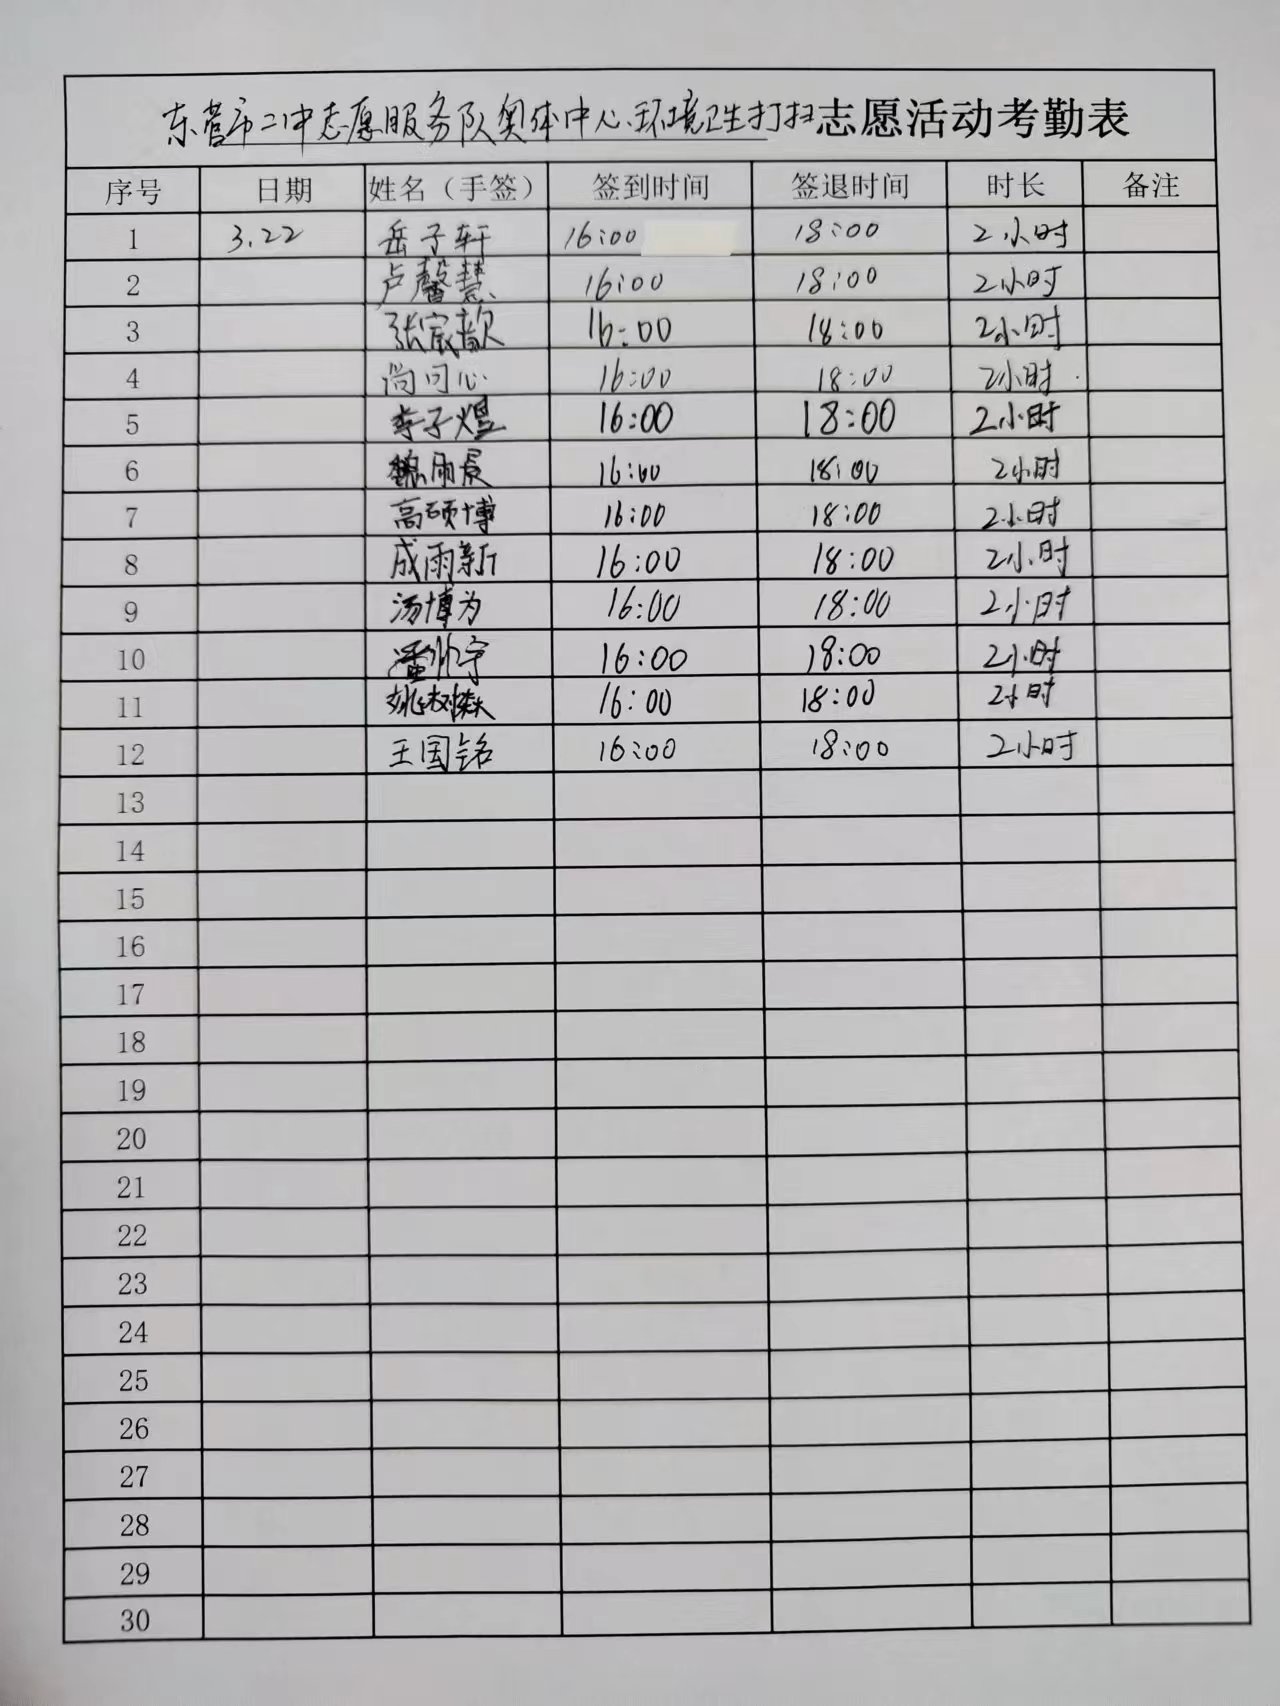 东营市二中志愿服务队奥体中心环境卫生打扫志愿活动考勤表
序号 日期 姓名（手签） 签到时间 签退时间 时长 备注
1 3.22 岳子轩 16:00 18:00 2小时
2 卢馨慧 16:00 18:00 2小时
3 张宸歆 16:00 18:00 2小时
4 尚问心 16:00 18:00 2小时
5 李子煜 16:00 18:00 2小时
6 魏雨晨 16:00 18:00 2小时
7 高硕博 16:00 18:00 2小时
8 成雨新 16:00 18:00 2小时
9 汤博为 16:00 18:00 2小时
10 潘帅宇 16:00 18:00 2小时
11 姚树 16:00 18:00 2小时
12 王国铭 16:00 18:00 2小时
13
14
15
16
17
18
19
20
21
22
23
24
25
26
27
28
29
30